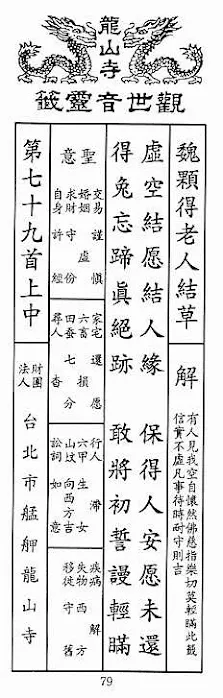 龍山寺
觀世音靈籤
魏顆得老人結草
解
有人見我空自懷然佛慈指樂切莫輕瞞此籤
信實不虛凡事待時耐守則吉
虛空結愿結人緣　保得人安愿未還
得兔忘蹄眞絕跡　敢將初誓謾輕瞞
聖意
交易　謹慎
婚姻　虛
求財　守份
自身　許經
家宅　還愿
六畜　損
田蚕　七分
尋人　杳
行人　滯
六甲　生女
山坟　向西方吉
訟詞　如意
疾病　解
失物　西方
移徙　守舊
第七十九首上中
財團法人　台北市艋舺龍山寺
79